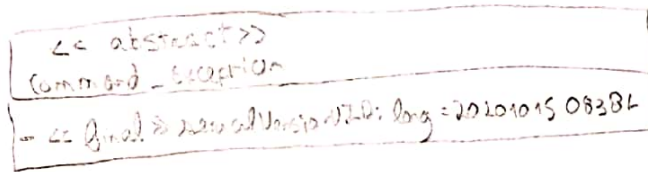 << abstract>>
Command_Exception
- << final >> serialVersionUID: long = 20201015083BL